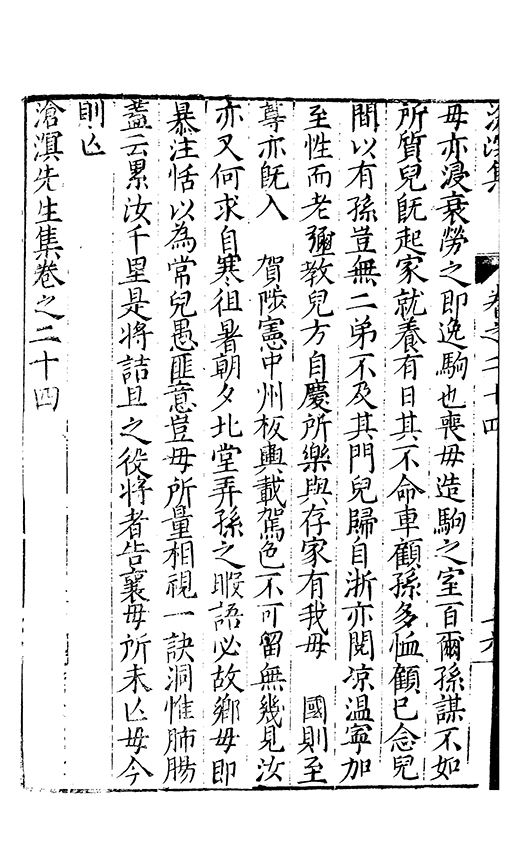 毋亦浸衰勞之即逸駒也喪毋造駒之室百爾孫謀不如
所質兒旣起家就養有日其不命車顧孫多恤顧已念兒
閒以有孫豈無二弟不及其門兒歸自浙亦閱凉温寧加
至性而老彌敎兒方自慶所樂與存家有我毋　國則至
尊亦旣入　賀陟憲中州板輿載駕色不可留無幾見汝
亦又何求自寒徂暑朝夕北堂弄孫之暇語必故鄉毋即
暴注恬以為常兒愚匪意豈毋所量相視一訣洞惟肺腸
葢云累汝千里是將詰旦之役將者告襄毋所未亾毋今
則亾
滄溟先生集卷之二十四